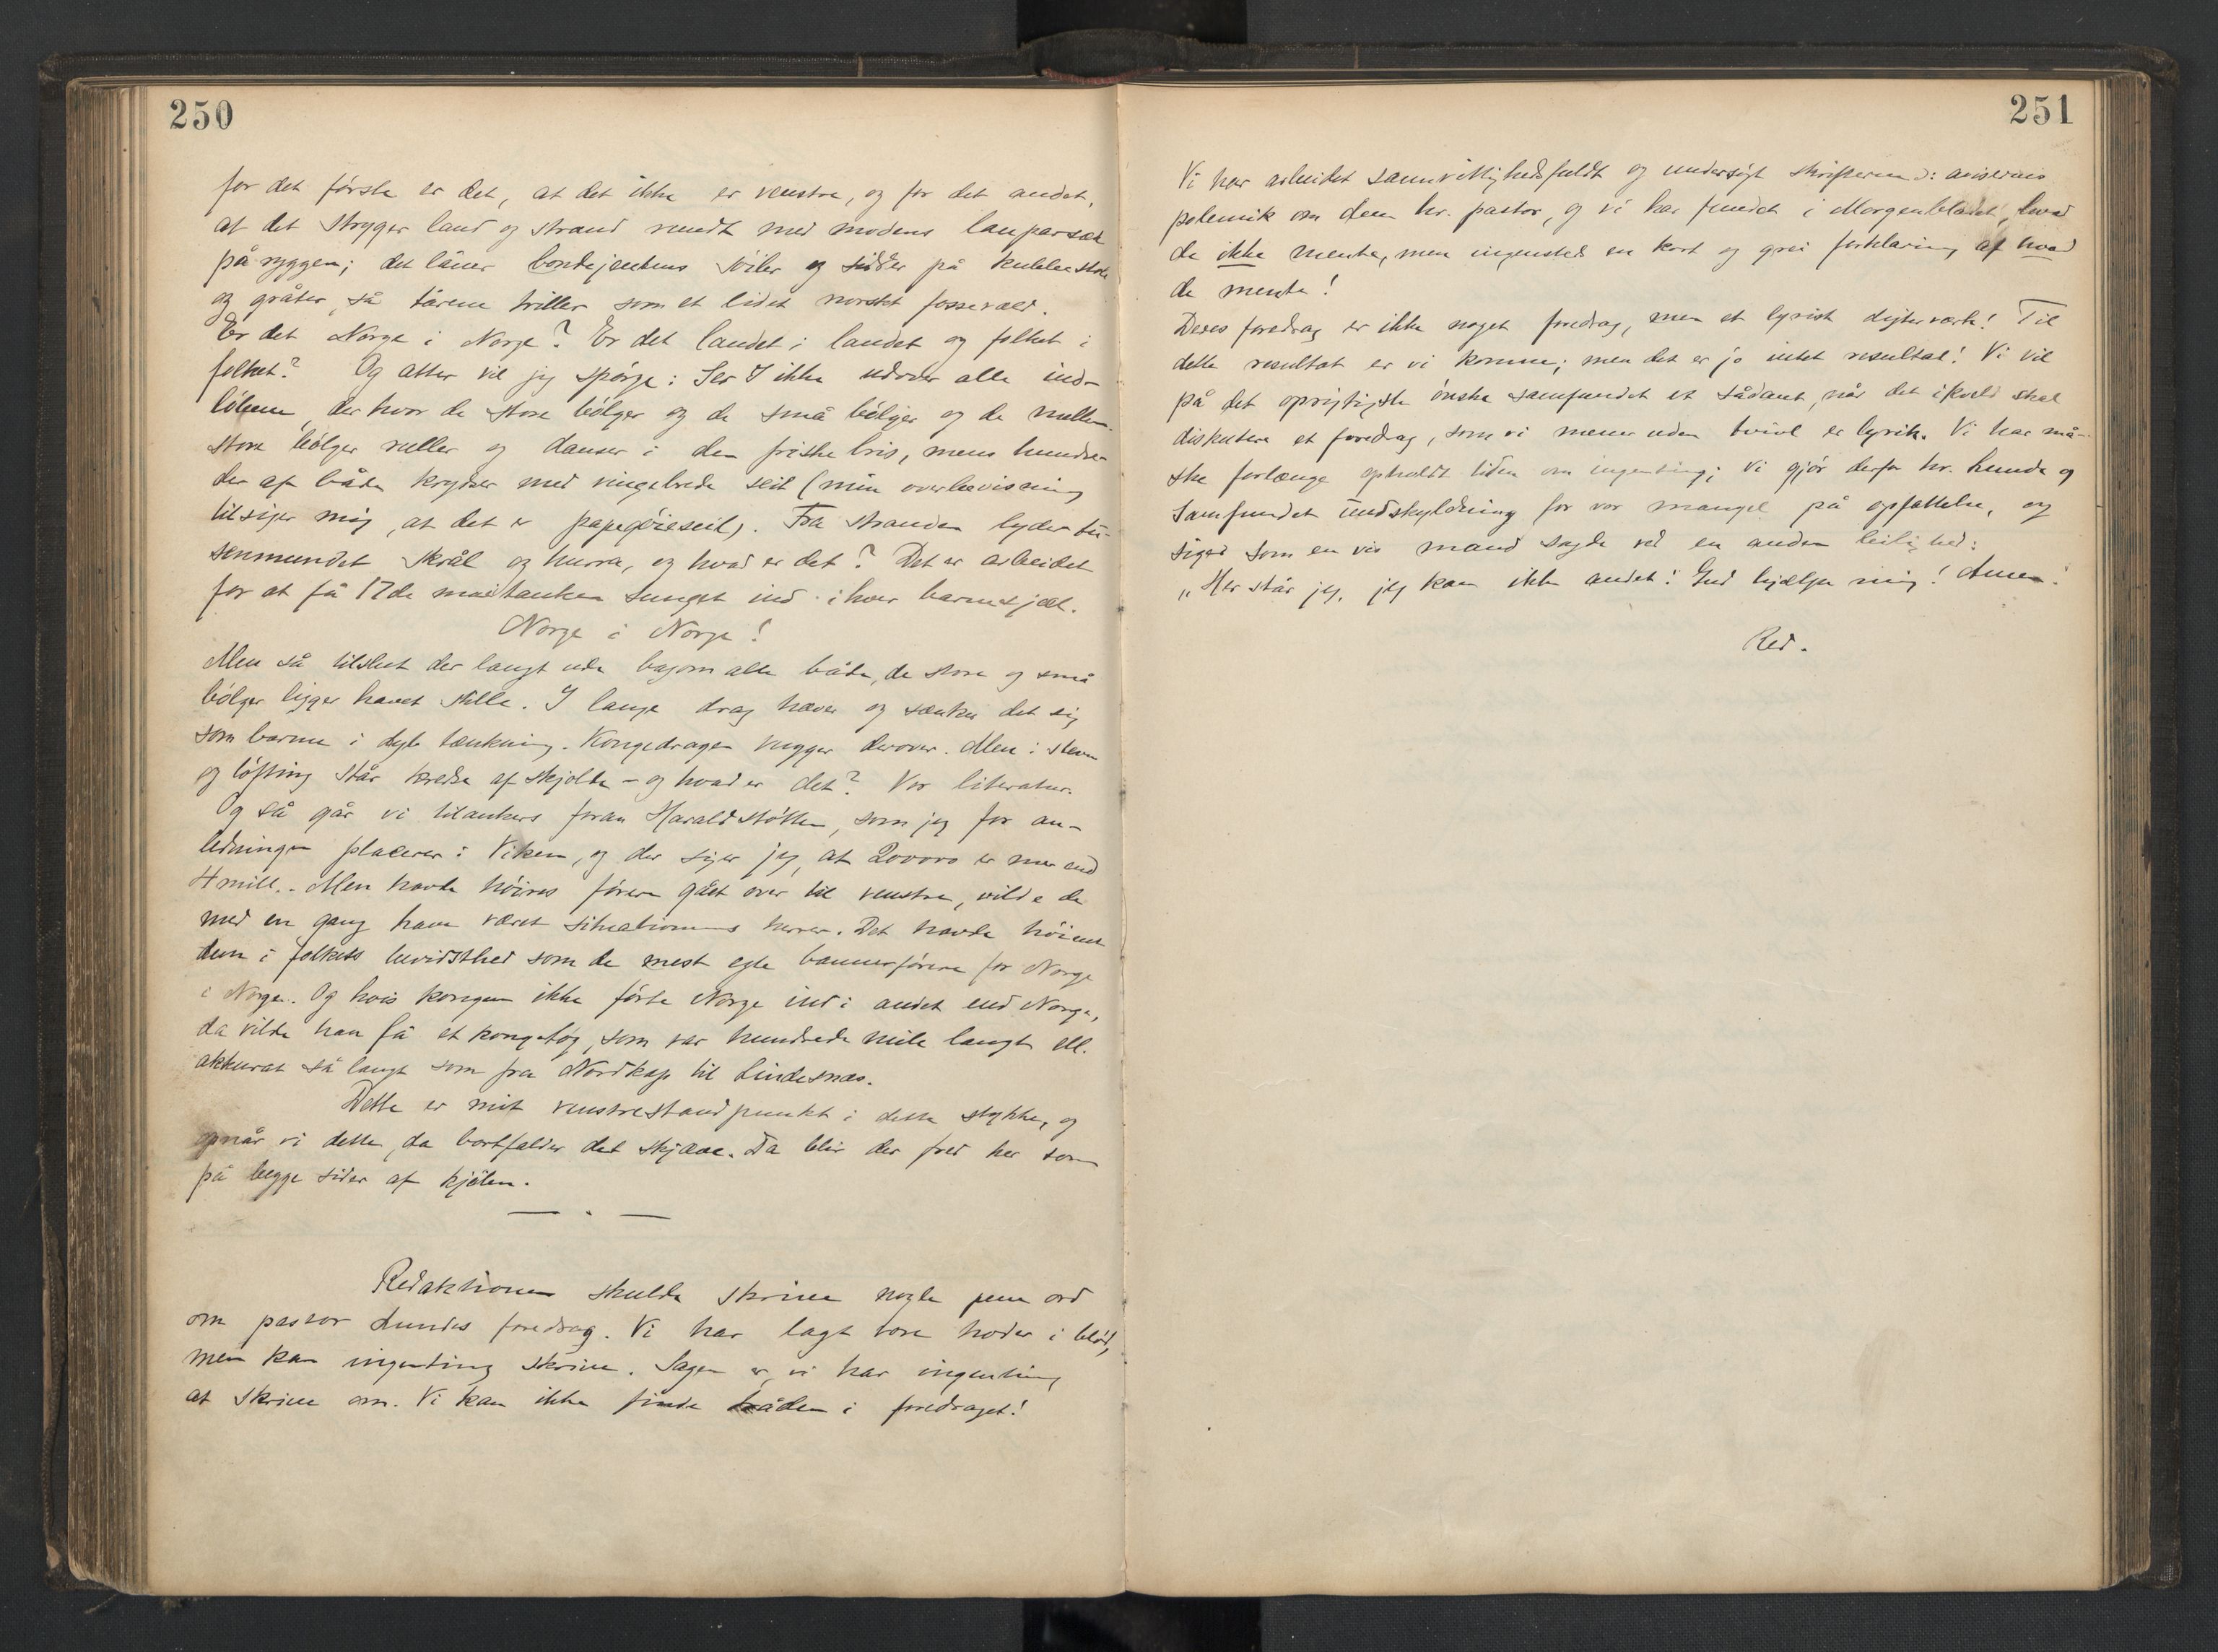 250
for det første er det, at det ikke er venstre, og for det andet,
at det strygger land og strand rundt med modens lauparsæk
på ryggen; det låner bondejentens sølv og sidder på kubbestole
og gråter, så tårene triller som et lidet norskt fossevæld.
Er det Norge i Norge? Er det landet i landet og folket i
folket? Og atter vil jeg spørge: Ser I ikke udover alle ind-
løbene, der hvor de store bølger og de små bølger og de mellem-
store bølger ruller og danser i den friske bris, mens hundre-
der af både krydser med vingebrede seil (min overbevisning
tilsiger mig, at det er papegøieseil). Fra stranden lyder tu-
senmundet skrål og hurra, og hvad er det? Det er arbeidet
for at få 17de maitanken sunget ind i hver barnesjæl.
Norge i Norge!
Men så tilslut der langt ude bagom alle både, de store og små
bølger ligger havet stille. I lange drag hæver og sænker det sig
som barme i dyb tænkning. Kongedragen vugger derover. Men i stevn
og løfting står kredse af skjolde – og hvad er det? Vor literatur.
Og så går vi tilankers foran Haraldstøtten, som jeg for an-
ledningen placerer i Viken, og der siger jeg, at 200000 er mer end
4 mill. - Men havde høires førere gået over til venstre, vilde de
med en gang have været situationens herrer. Det havde høinet
dem i folkets bevidsthed som de mest egte bannerførere for Norge
i Norge. Og hvis kongen ikke førte Norge ind i andet end Norge,
da vilde han få et kongetog, som var hundrede mile langt ell.
akkurat så langt som fra Nordkap til Lindesnæs.
Dette er mit venstrestandpunkt i dette stykke, og
opnår vi dette, da bortfalder det skjæve. Da blir der fred her som
på begge sider af kjølen.
— . —
Redaktionen skulde skrive nogle pene ord
om pastor Lundes foredrag. Vi har lagt vore hoder i bløt,
men kan ingenting skrive. Sagen er, vi har ingenting
at skrive om. Vi kan ikke finde tråden i foredraget!
251
Vi har arbeidet samvittighedsfuldt og undersøgt skrifterne ɔ: avisernes
polemik om dem hr. pastor, og vi har fundet i Morgenbladet, hvad
de ikke mente, men ingensteds en kort og grei forklaring af hvad
de mente!
Deres foredrag er ikke noget foredrag, men et lyrisk digterværk! Til
dette resultat er vi komne; men det er jo intet resultat! Vi vil
på det oprigtigste ønske samfundet et sådant, når det ikveld skal
diskutere et foredrag, som vi mener uden tvivl er lyrik. Vi har må-
ske forlænge opholdt tiden om ingenting; vi gjør derfor hr. Lunde og
Samfundet undskyldning for vor mangel på opfattelse, og
siger som en vis mand sagde ved en anden leilighed:
„Her står jeg, jeg kan ikke andet! Gud hjælpe mig! Amen."
Red.